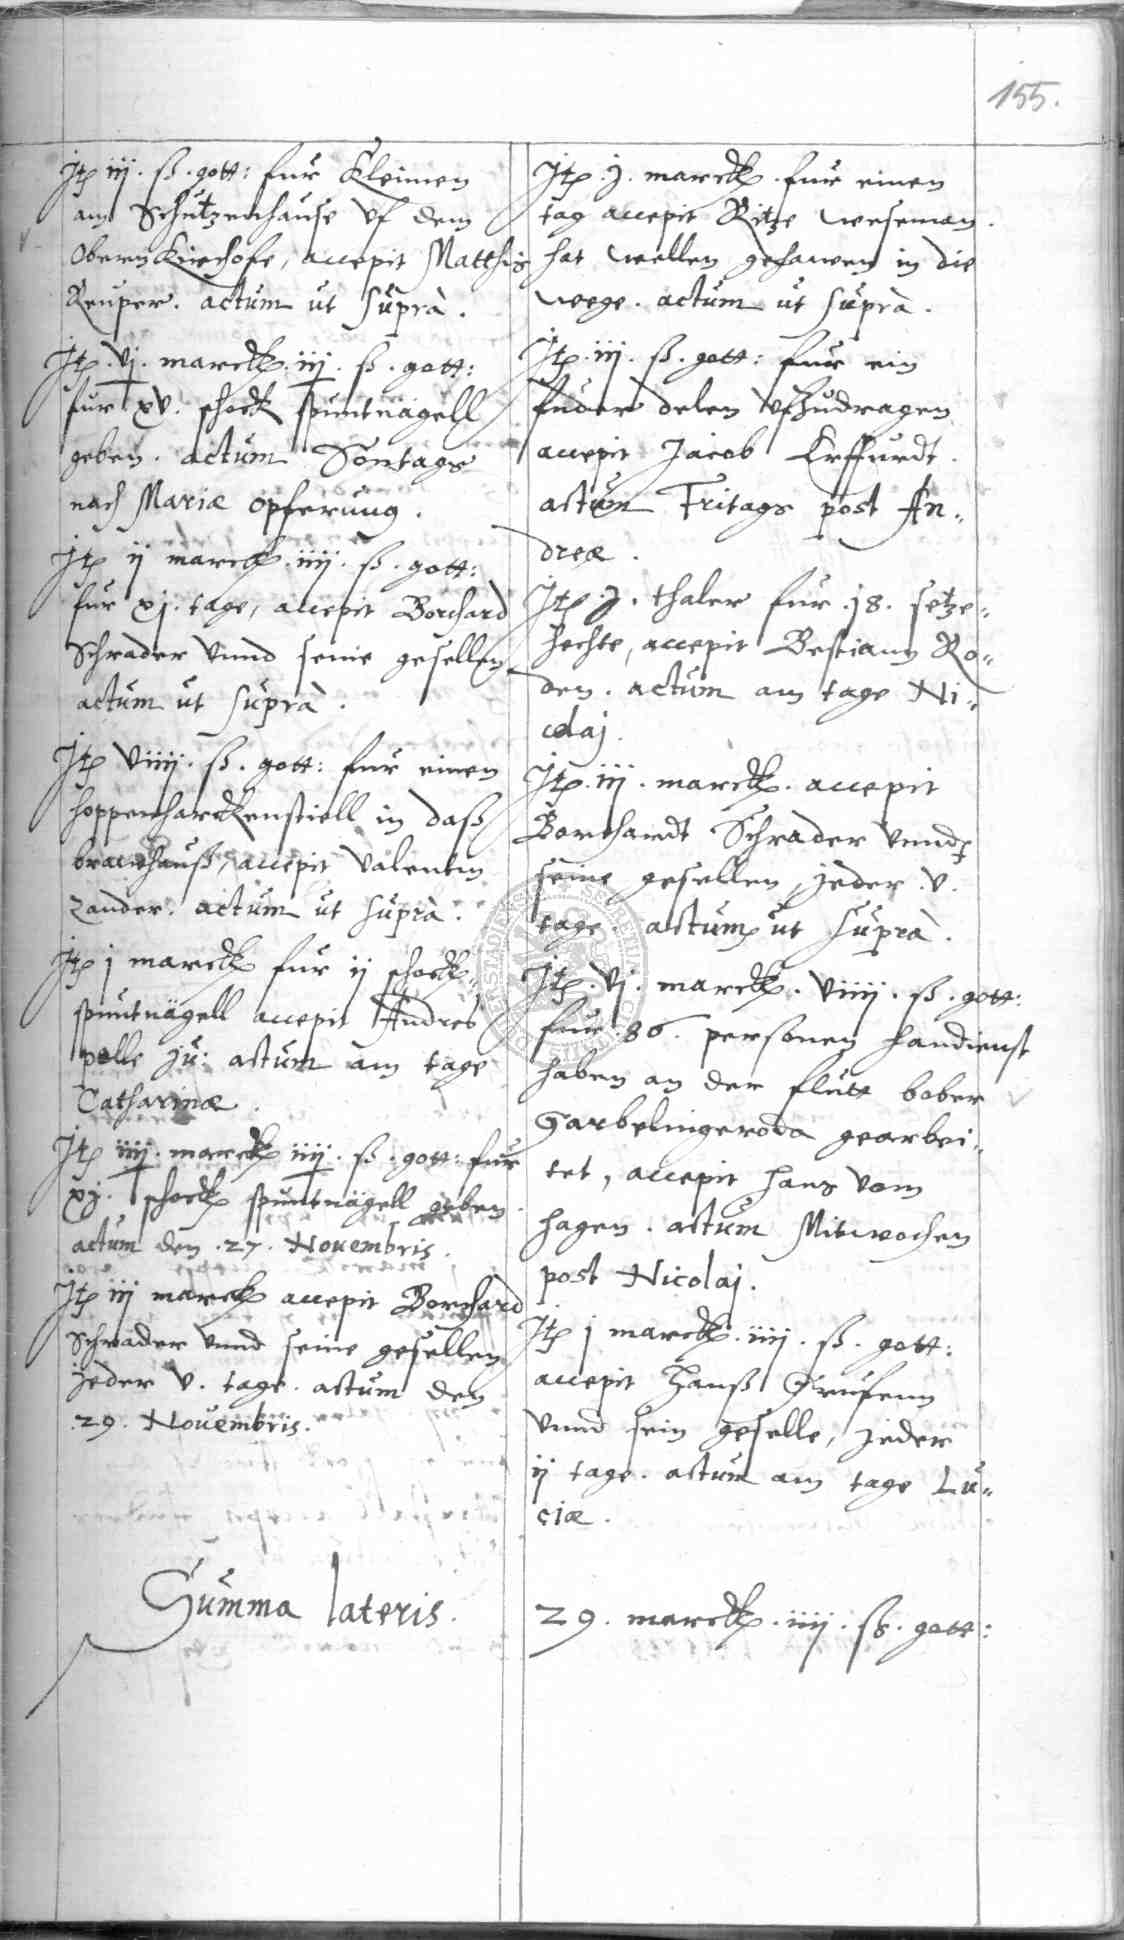 155.
Jtp iij. ß. gott: fur Kleimen
am Schutzenhause vf dem
Obern Kirchofe, accepit Matthis
Reuper. actum ut suprà.
Jtp. vj. marck. iij. ß. gott:
fur xv. schock spuntnägell
geben. actum Sontags
nach Mariæ opferung.
Jtp ij marck. iiij. ß. gott:
fur xj. tage, accepit Borchard
Schrader vnnd seine gesellen
actum ut suprà.
Jtp viiij. ß. gott: fur einen
hoppenharckenstiell in daß
brauhauß, accepit Valentin
Zander. actum ut suprà.
Jtp j marck fur ij schock
spuntnägell accepit Andres
pelle ju: actum am tage
Catharinæ.
Jtp iiij. marck iiij. ß. gott: fur
xj. schock spuntnägell geben.
actum den .27. Nouembris.
Jtp iij marck accepit Borchard
Schrader vnnd seine gesellen
jeder v. tage. actum den
.29. Nouembris.
Summa lateris.
Jtp .j. marck. fur einen
tag accepit Ritze weseman.
hat wellen gehawen in die
wege. actum ut suprà.
Jtp. iij. ß. gott: fur ein
fuder delen vfzudragen
accepit Jacob Erffurdt.
actum Fritags post An„
dreæ.
Jtp .j. thaler fur .18. setze„
hechte, accepit Bestiann Ro„
den. actum am tage Ni„
colaj.
Jtp. iij. marck. accepit
Borchardt Schrader vnnd
seine gesellen, jeder .v.
tage. actum ut suprà.
Jtp. vj. marck. viiij. ß. gott:
fur .86. personen handienst
haben an der flutt bober
Garbelingeroda gearbei„
tet, accepit hans vom
hagen. actum Mitwochen
post Nicolaj.
Jtp j marck. iiij. ß. gott:
accepit Hanß
vnnd sein geselle, jeder
ij tage. actum am tage Lu„
ciæ.
29. marck. iiij. ß. gott: